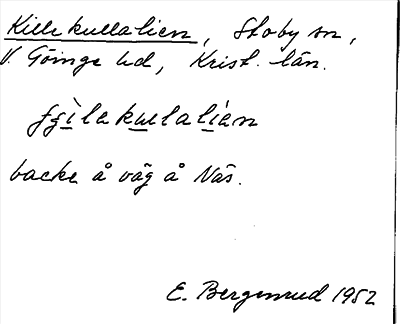 Kille kullalien, Stoby sn,
V. Göinge hd, Krist. län.
fʒìlekullalíen
backe å väg å Näs.
E. Bergenrud 1952